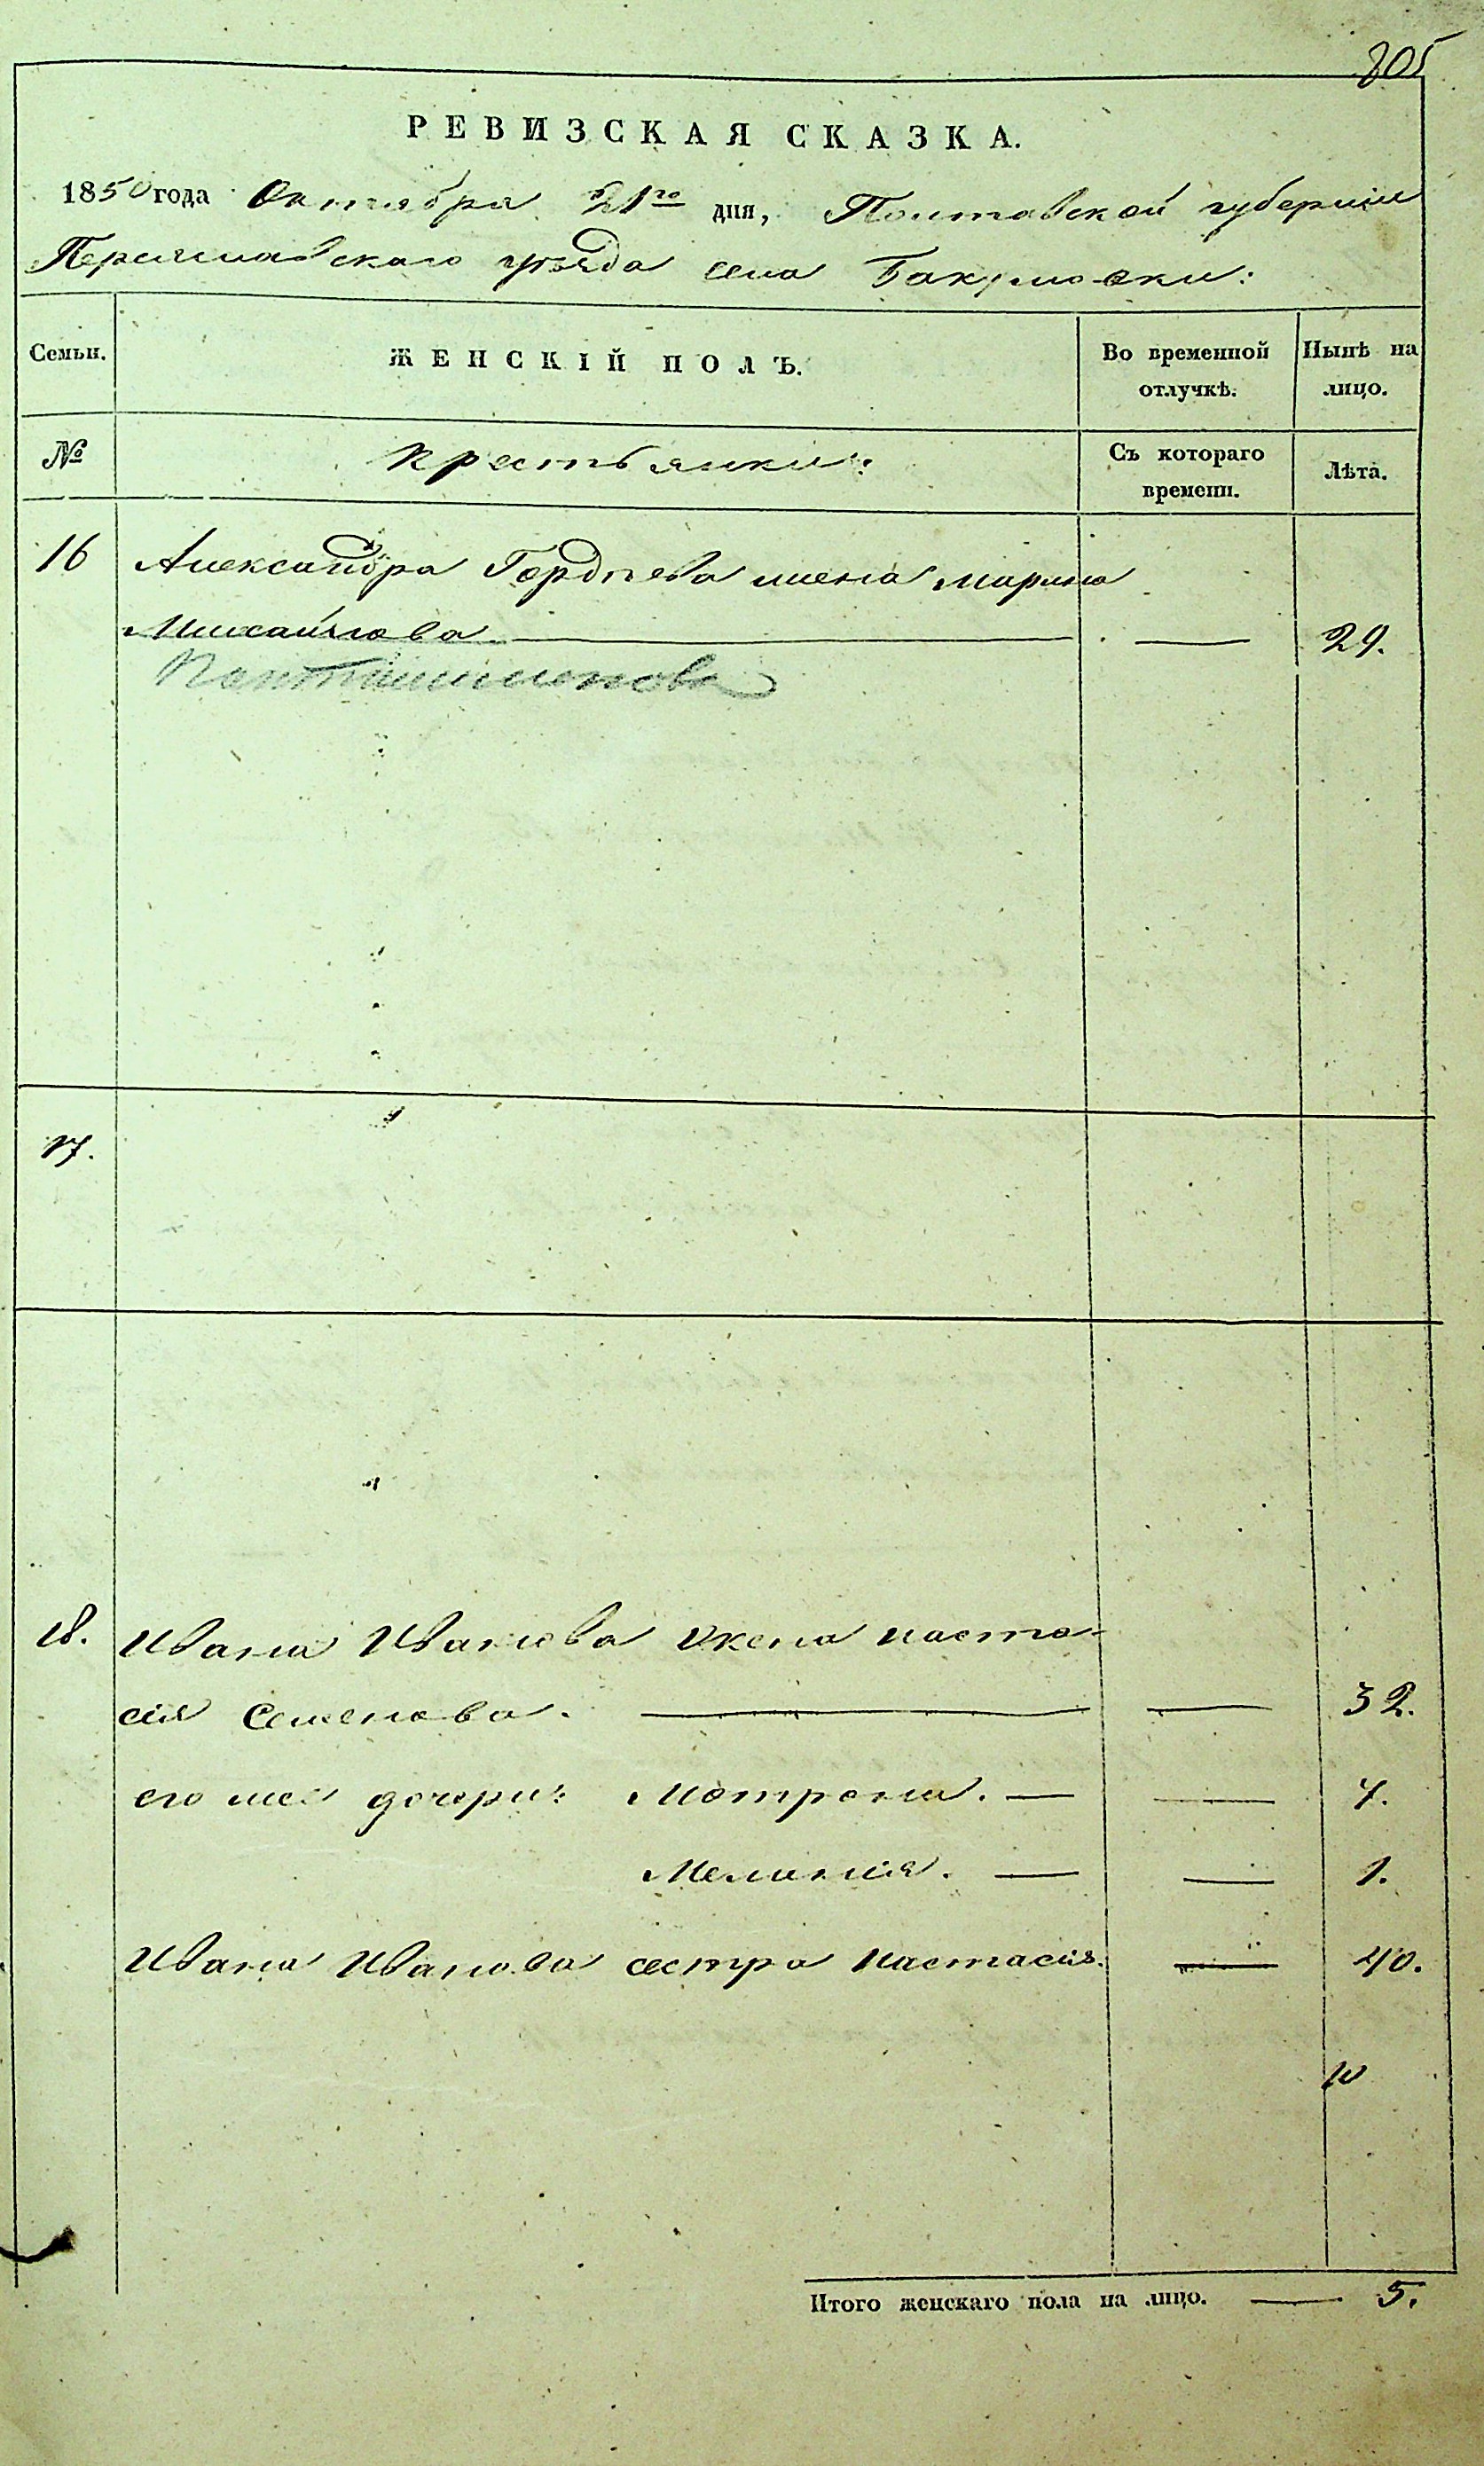 805
РЕВИЗСКАЯ СКАЗКА.
1850 года Октября 21го дня, Полтавской губерніи
Переяславскаго уѣзда села Бакумовки:
Семьи.
ЖЕНСКІЙ ПОЛЪ.
Во временной отлучкѣ.
Нынѣ на лицо.
№
крестьянки:
Съ котораго времени.
Лѣта.
16 Александра Гордѣева жена марина
Михайлова — — 29.
17.
18. Ивана Иванова жена наста-
сія Семенова. — — 32.
его же дочери: Мотрона. — — 7.
Меланія. — — 1.
Ивана Иванова сестра настасія. — 40.
Итого женскаго пола на лицо. — 5.